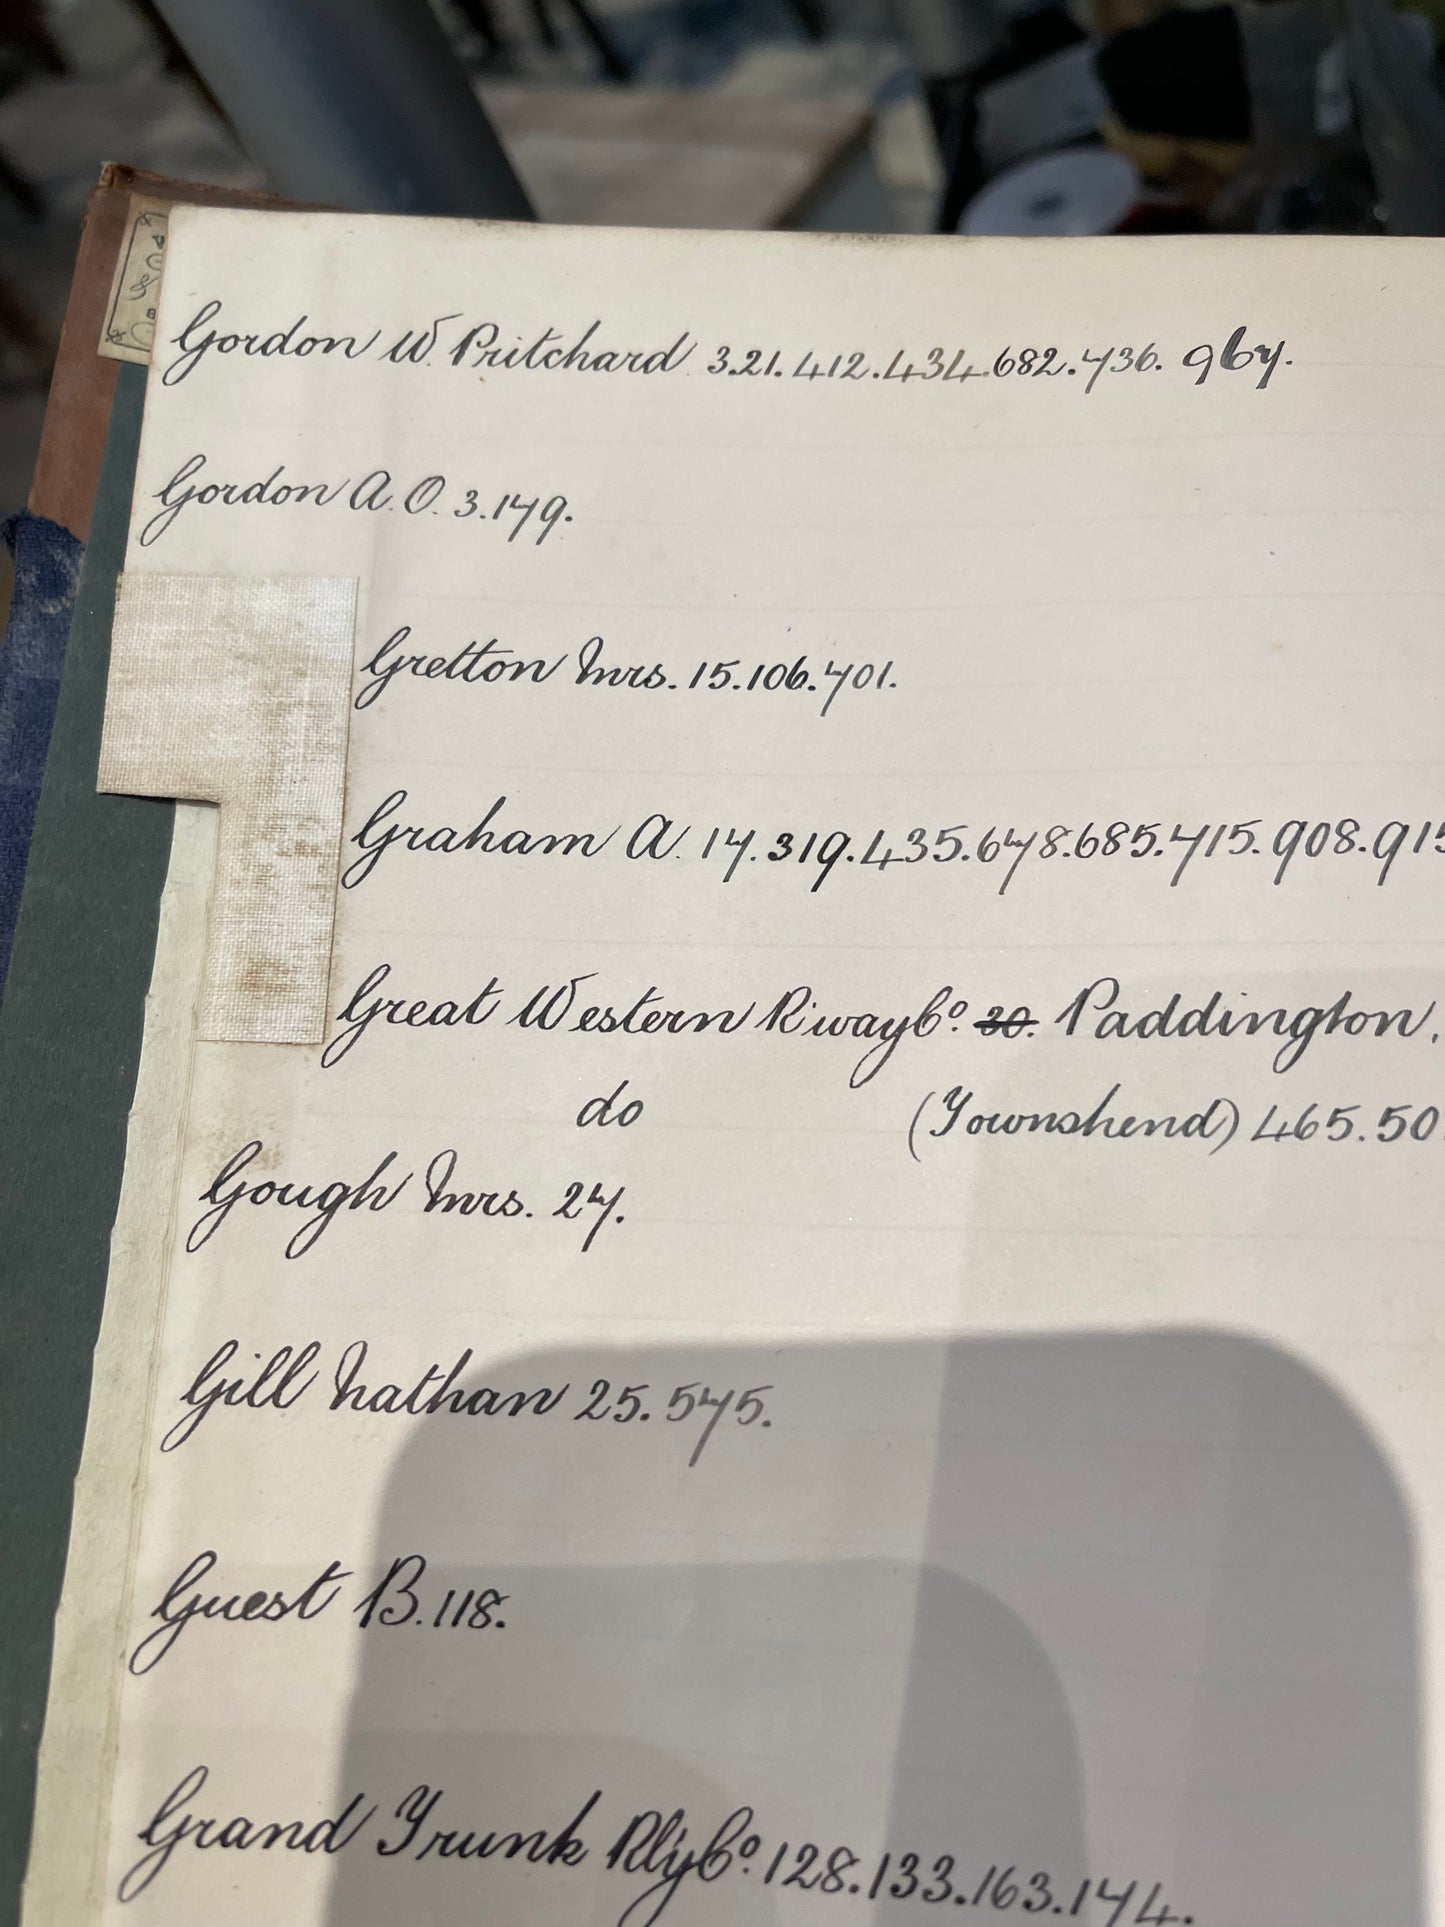 Gordon W. Pritchard 3.21.412.434.682.736. 967.
Gordon A. O. 3.179.
Gretton Mrs. 15.106.701.
Graham A. 17.319.435.678.685.715.908.915
Great Western R'way Co. 30. Paddington.
do (Townshend) 465.50
Gough Mrs. 27.
Gill Nathan 25.575.
Guest B. 118.
Grand Trunk Rly Co. 128.133.163.174.